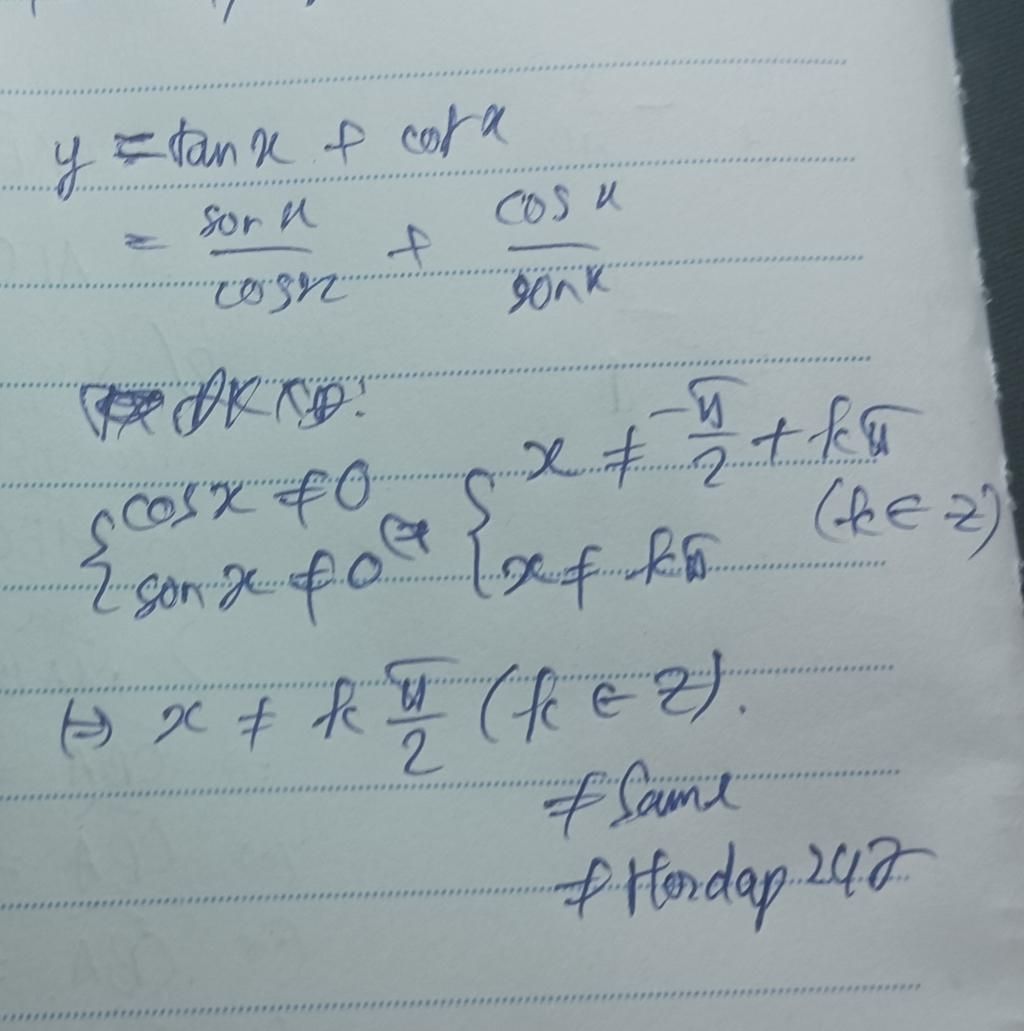 y = tan x + cot x
= sin x / cos x + cos x / sin x
ĐKXĐ:
{ cos x ≠ 0 { x ≠ -π/2 + kπ
{ sin x ≠ 0 ⇔ { x ≠ kπ (k ∈ Z)
⇔ x ≠ k π/2 (k ∈ Z).
# Same
# Hoidap247